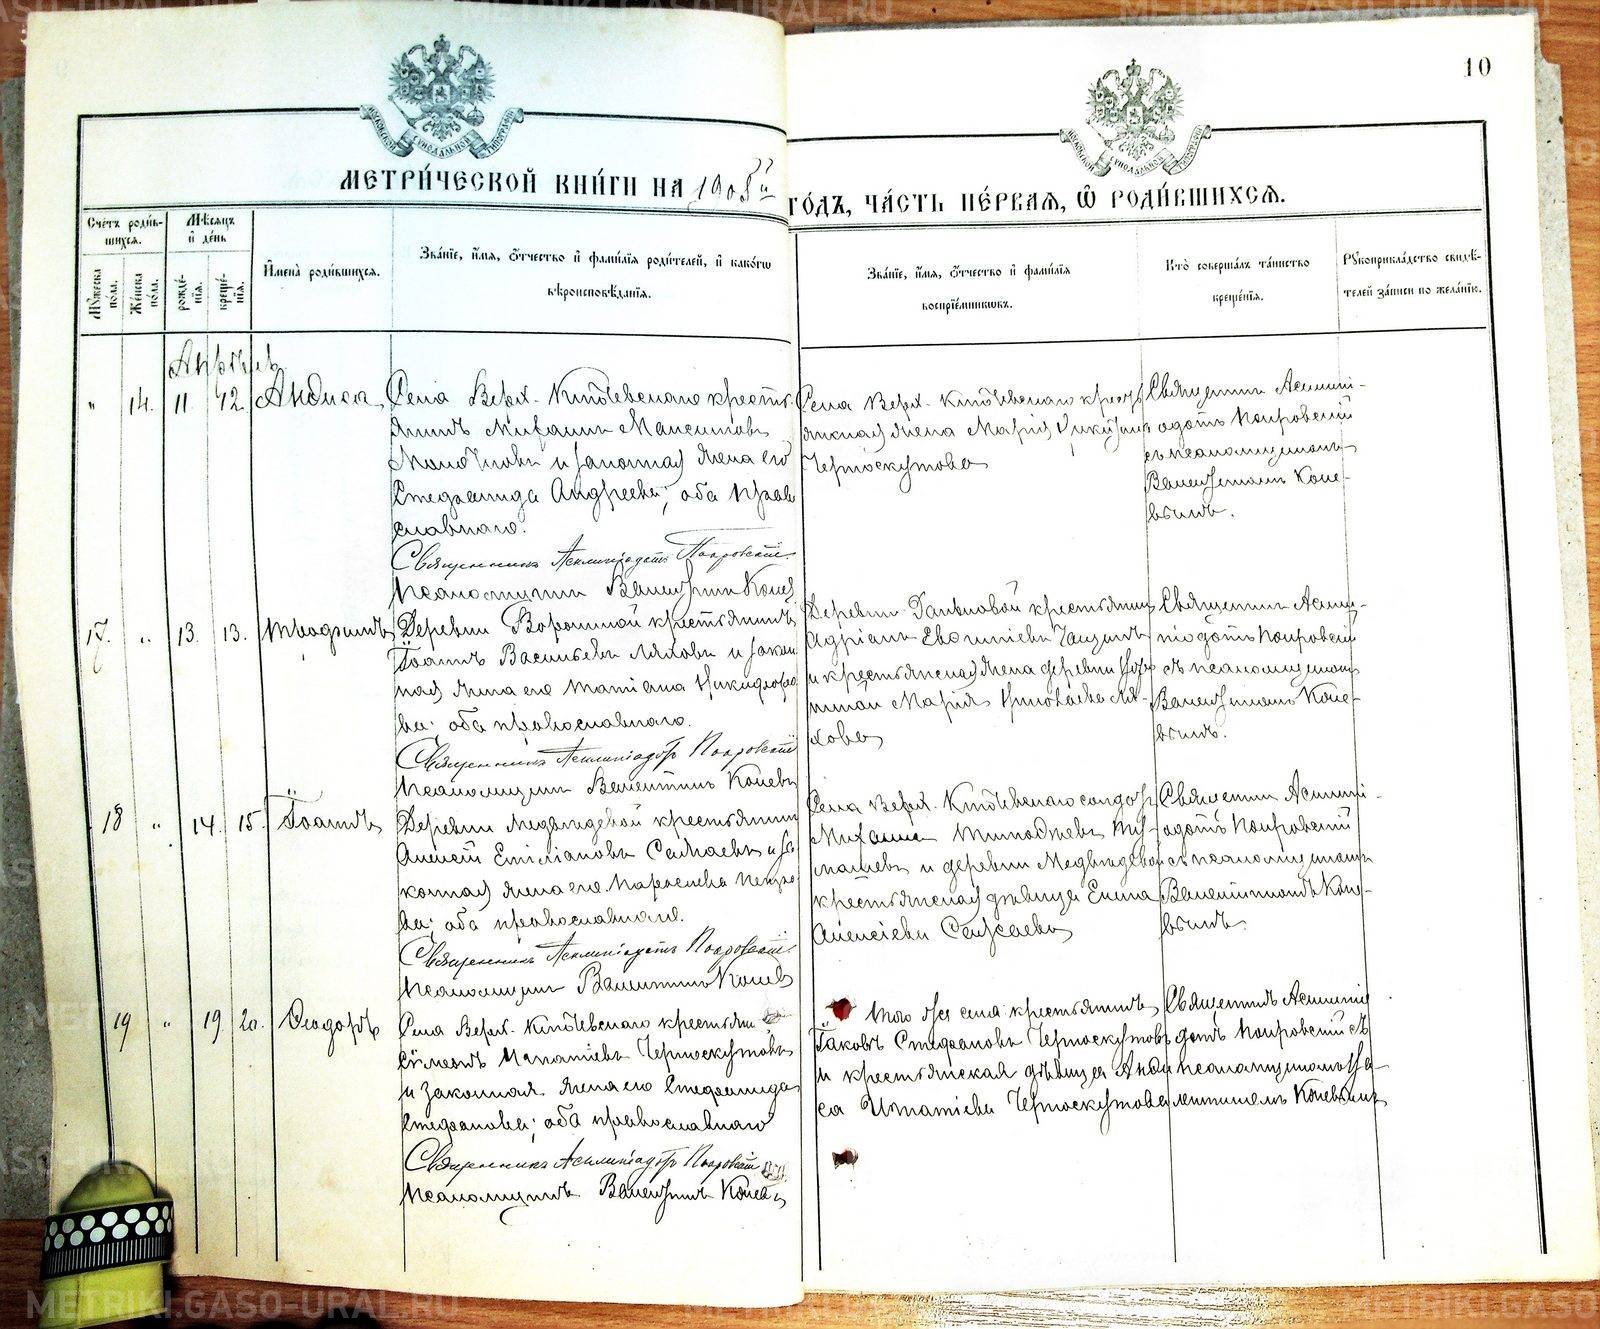 METRIKI.GASO-URAL.RU
10
МОСКОВСКОЙ СѴНОДАЛЬНОЙ ТИПОГРАФІИ
МОСКОВСКОЙ СѴНОДАЛЬНОЙ ТИПОГРАФІИ
МЕТРИ́ЧЕСКОЙ КНИ́ГИ НА 1905й
ГО́ДЪ, ЧА́СТЬ ПЕ́РВАЯ, Ѡ РОДИ́ВШИХСЯ.
Сче́тъ роди́в-
шихся.
Мѣ́сяцъ
и́ де́нь
Му́жеска
по́ла.
Же́нска
по́ла.
рожде́-
нія.
креще́-
нія.
И́мена̀ роди́вшихся.
Зва́ніе, и́мя, ѻ́тчество и́ фами́лія роди́телей, и́ како́гѡ
вѣроисповѣ́данія.
Зва́ніе, и́мя, ѻ́тчество и́ фами́лія
воспріе́мниковъ.
Кто̀ соверша́лъ та́инство
креще́нія.
Рꙋкоприкла́дство свидѣ́-
телей за́писи по жела́нію.
Апрѣль
" 14. 11 12. Анфиса
Села Верх. Ключевскаго кресть-
янинъ Михаилъ Максимовъ
и законная жена его
Стефанида Андреева; оба право
славнаго.
Священникъ Асклипіадотъ Покровскій
Псаломщикъ Валентинъ Коневъ
Села Верх. Ключевскаго кресть
янская жена Марія
Черноскутова
Священникъ Асклипі-
адотъ Покровскій
съ псаломщикомъ
Валентиномъ Коне-
вымъ.
17. " 13. 13. Трофимъ
Деревни крестьянинъ
Іоаннъ Васильевъ Ляховъ и закон
ная жена его Татіана Никифоро
ва; оба православнаго.
Священникъ Асклипіадотъ Покровскій
Псаломщикъ Валентинъ Коневъ
Деревни крестьянинъ
Адріанъ
и крестьянская жена деревни
Марія Николаева Ля-
хова
Священникъ Аскли-
піодотъ Покровскій
съ псаломщикомъ
Валентиномъ Коне-
вымъ.
18 " 14. 15. Іоаннъ
Деревни Медвѣдевой крестьянинъ
Алексій Емиліановъ и за
конная жена его Параскева Петро
ва; оба православнаго.
Священникъ Асклипіадотъ Покровскій
Псаломщикъ Валентинъ Коневъ
Села Верх. Ключевскаго солдатъ
Михаилъ Тимофеевъ
и деревни Медвѣдевой
крестьянская дѣвица Елена
Алексіева
Священникъ Асклипі-
адотъ Покровскій
съ псаломщикомъ
Валентиномъ Коне-
вымъ.
19 " 19 20. Ѳеодоръ
Села Верх. Ключевскаго крестьянинъ
Симеонъ Игнатіевъ Черноскутовъ
и законная жена его Стефанида
Стефанова; оба православнаго
Священникъ Асклипіадотъ Покровскій
Псаломщикъ Валентинъ Коневъ
Того же села крестьянинъ
Іаковъ Стефановъ Черноскутовъ
и крестьянская дѣвица Анфи
са Игнатіева Черноскутова
Священникъ Асклипіо
дотъ Покровскій съ
псаломщикомъ Ва-
лентиномъ Коневымъ
METRIKI.GASO-URAL.RU